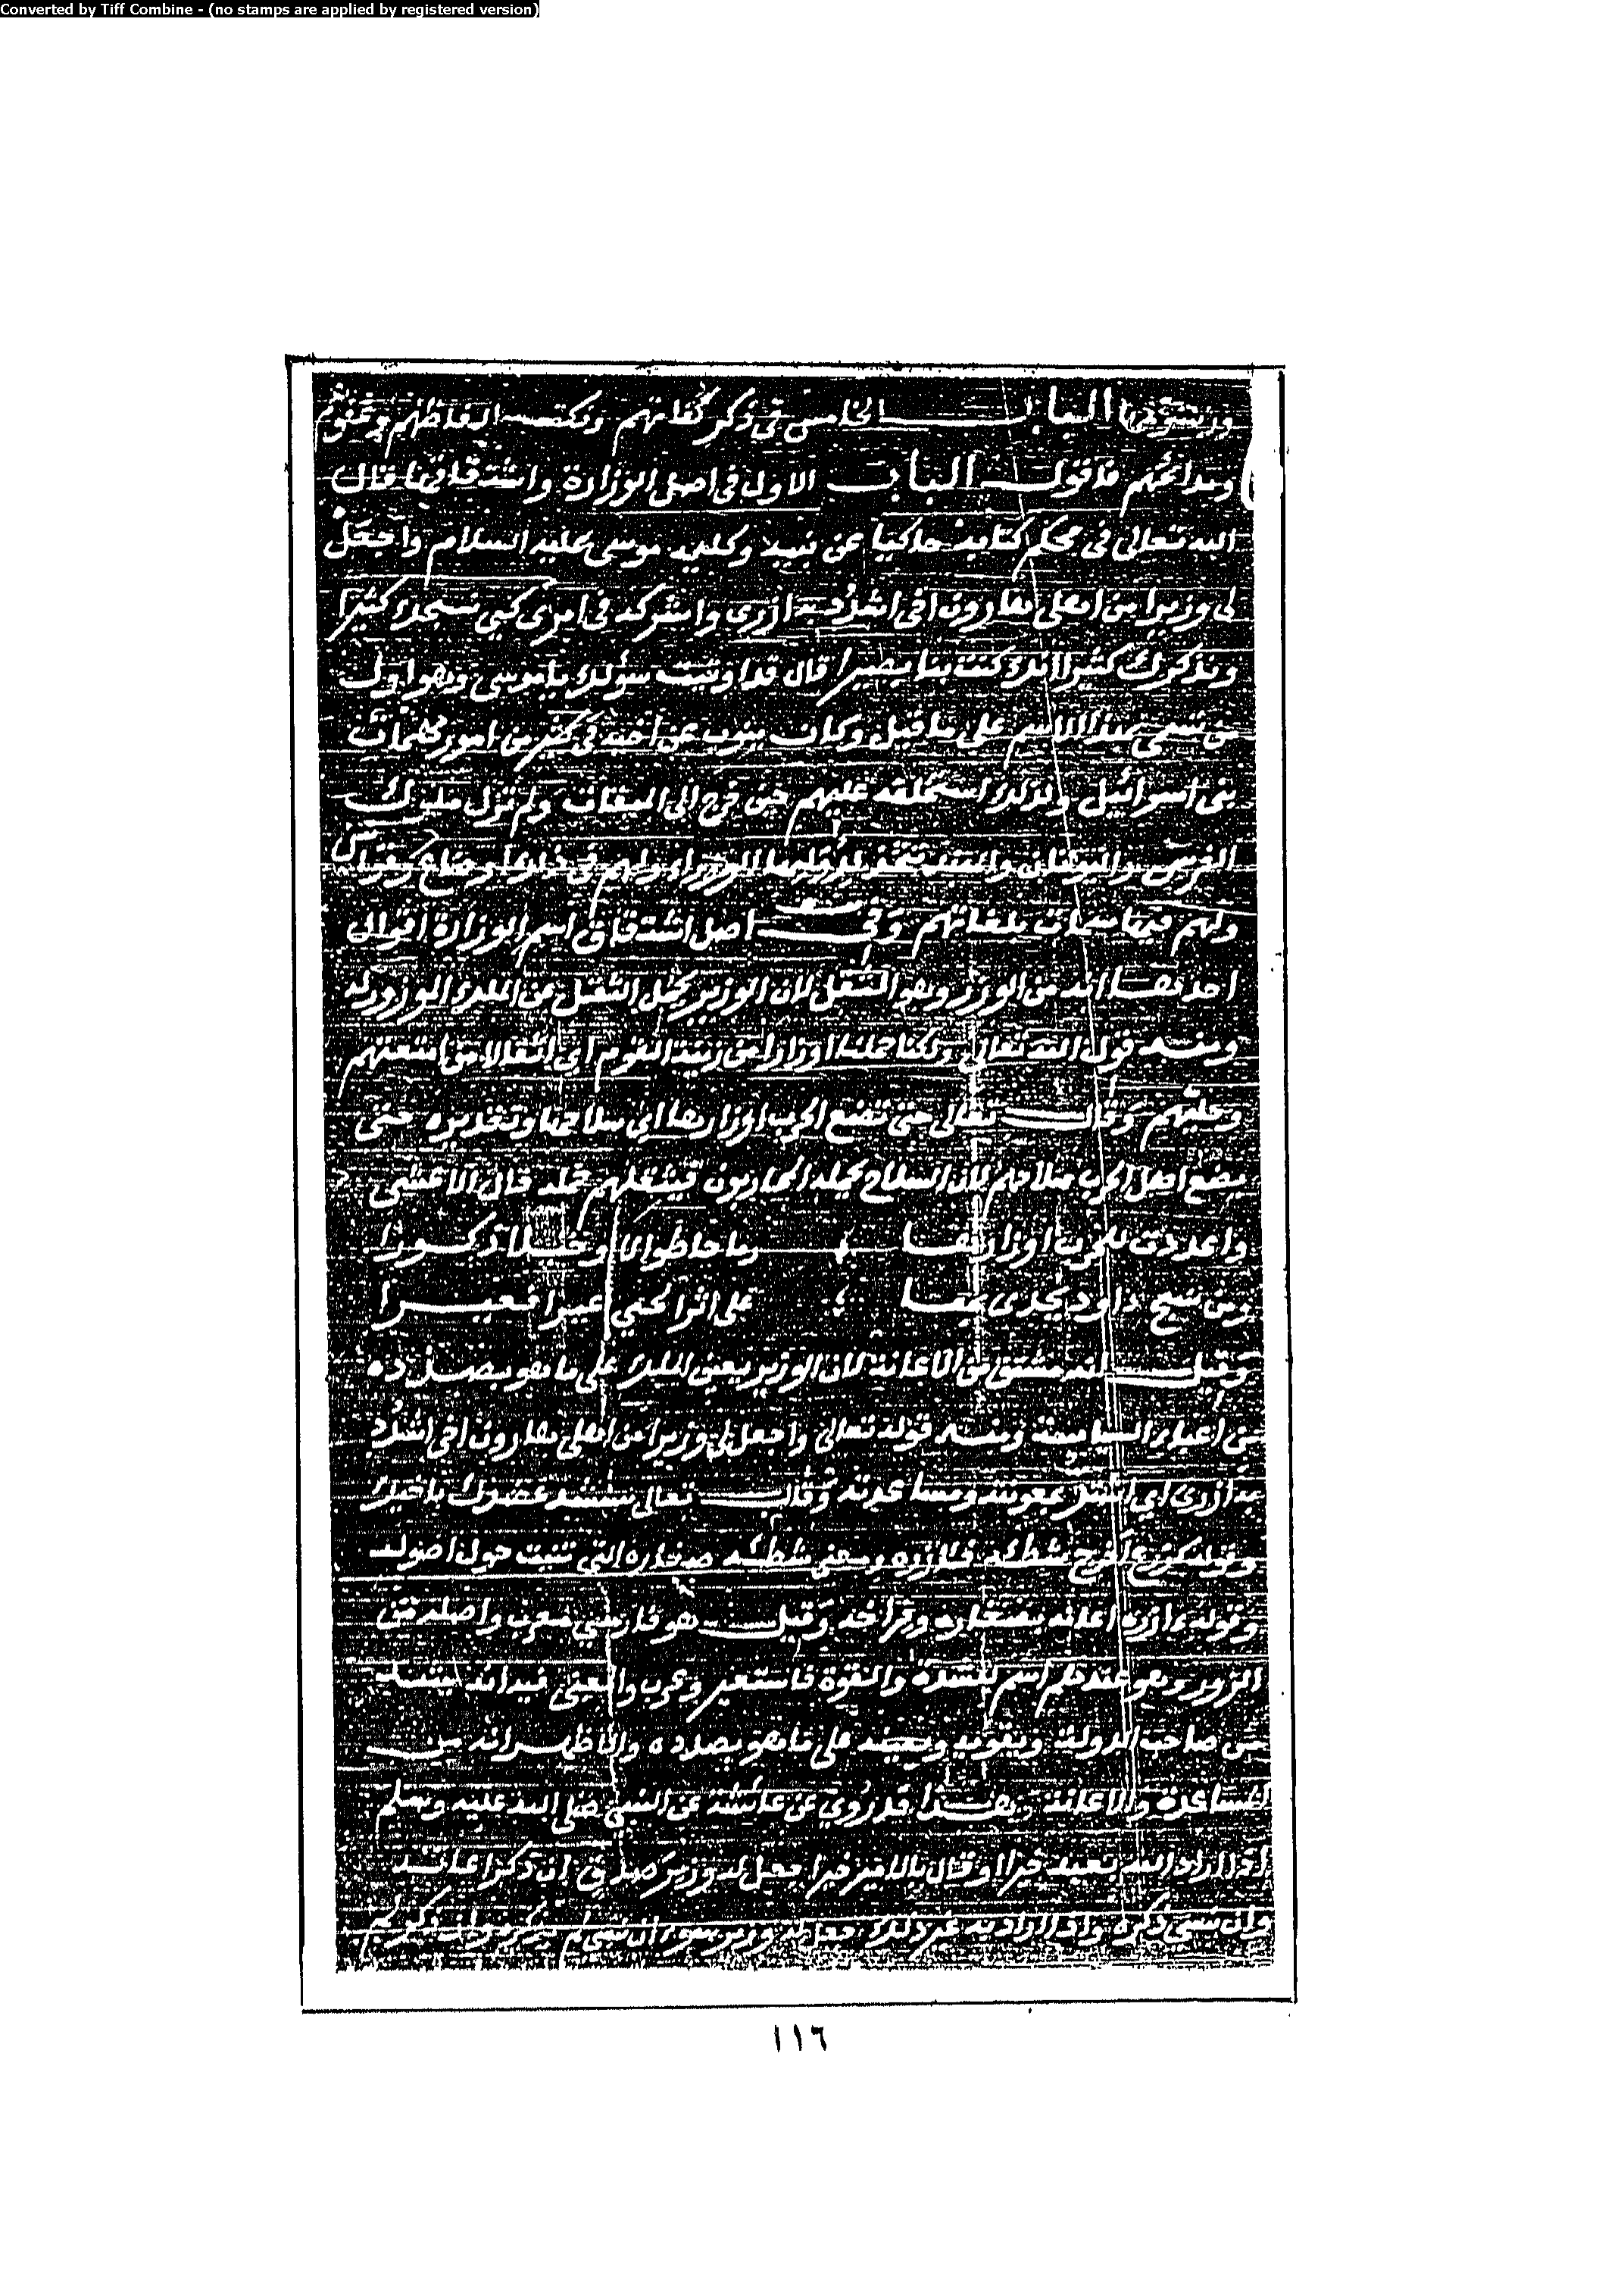 Converted by Tiff Combine - (no stamps are applied by registered version)
الباب الخامس في ذكر كفاتهم ونكت الفاظهم
وبدائعهم فاقول الباب الاول في اصل الوزارة واشتقاقها قال
الله تعالى في محكم كتابه حاكيا عن نبيه وكليمه موسى عليه السلام واجعل
لي وزيرا من اهلي هارون اخي اشدد به ازري واشركه في امري كي نسبحك كثيرا
ونذكرك كثيرا انك كنت بنا بصيرا قال قد اوتيت سؤلك يا موسى وهو اول
من سمي بهذا الاسم على ما قيل وكان ينوب عن اخيه في كثير من امور
بني اسرائيل ولذلك استخلفه عليهم حين خرج الى الميقات ولم تزل ملوك
الفرس واليونان
ولهم فيها وفي اصل اشتقاق اسم الوزارة اقوال
احدها انه من الوزر وهو الثقل لان الوزير يحمل الثقل عن الملك
ومنه قول الله تعالى ولكنا حملنا اوزارا من زينة القوم اي اثقالا من امتعتهم
وحليهم وقال تعالى حتى تضع الحرب اوزارها اي سلاحها وتقديره حتى
يضع اهل الحرب سلاحهم لان السلاح يحمله المحاربون فيثقلهم حمله قال الاعشى
واعددت للحرب اوزارها رماحا طوالا وخيلا ذكورا
ومن نسج داود يحدى بها على اثر الحي عيرا فعيرا
وقيل انه مشتق من الاعانة لان الوزير يعين الملك على ما هو بصدده
من اعباء السياسة ومنه قوله تعالى واجعل لي وزيرا من اهلي هارون اخي اشدد
به ازري اي معونته ومساعدته وقال تعالى سنشد عضدك باخيك
وقوله كزرع اخرج شطئه فآزره ومعنى شطئه صغاره التي تنبت حول اصوله
وقوله فآزره اعانه بصغاره وفراخه وقيل هو فارسي معرب واصله من
الزور وهو عندهم اسم للشدة والقوة فاستعير وعرب والمعنى فيه انه يشد
من صاحب الدولة ويقويه ويعينه على ما هو بصدده والاظهر انه من
المساعدة والاعانة وهذا قد روي عن عائشة عن النبي صلى الله عليه وسلم
اذا اراد الله بعبد خيرا او قال بالامير خيرا جعل له وزير صدق ان ذكر اعانه
وان نسي ذكره واذا اراد به غير ذلك جعل له وزير سوء ان نسي لم يذكره وان ذكر لم
١١٦